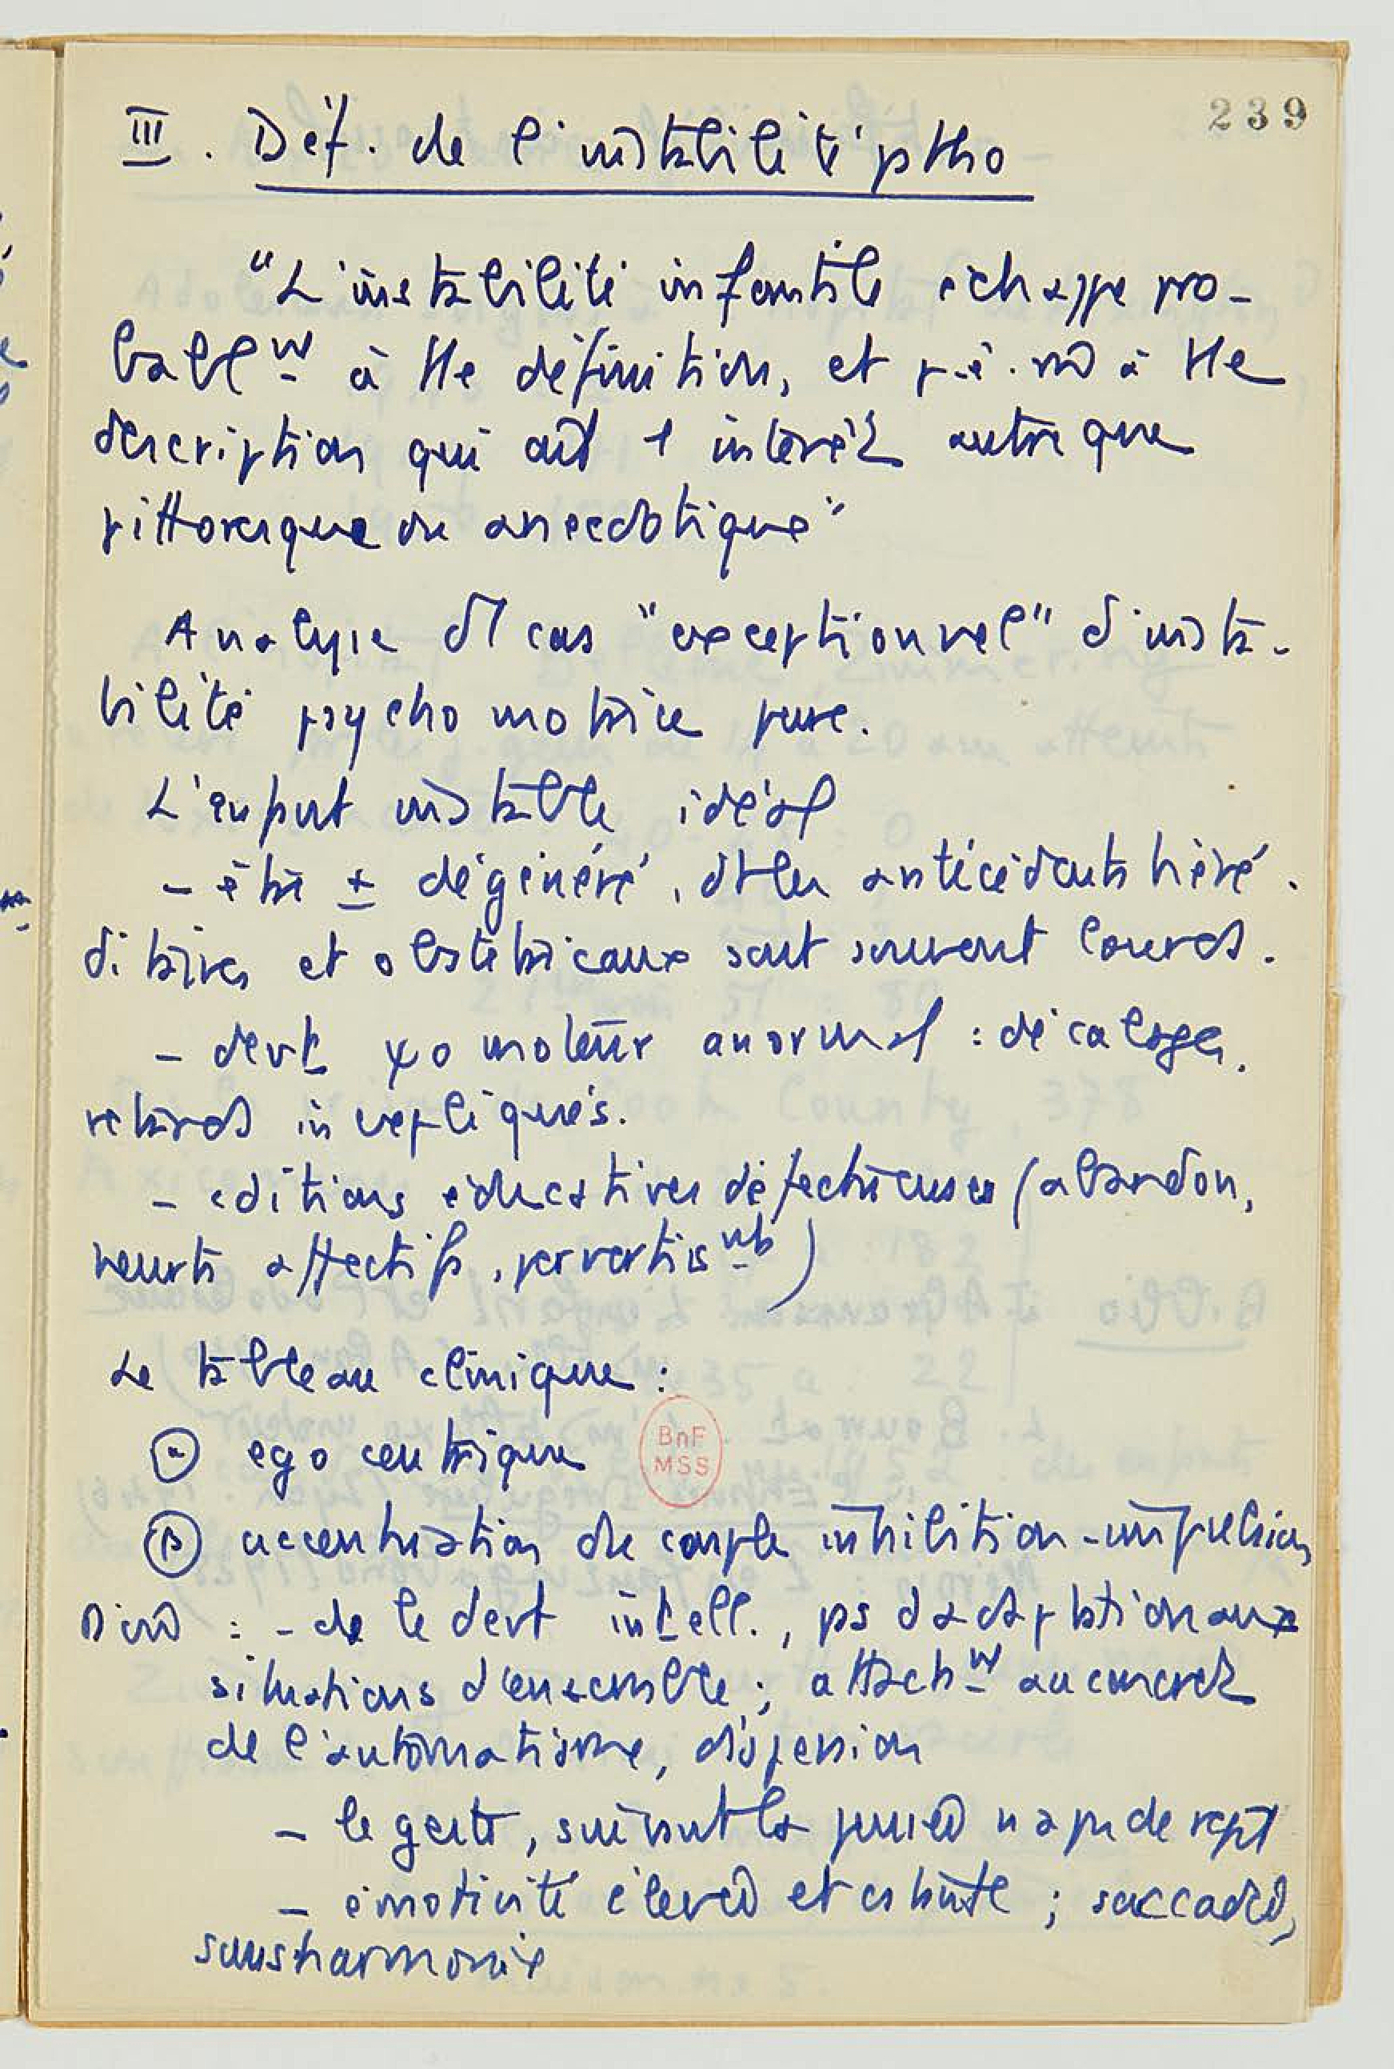 239
III. Déf. de l'instabilité ptho
"L'instabilité infantile échappe pro-
babl^nt à tte définition, et p.ê. m̂ à tte
description qui ait 1 intérêt autre que
pittoresque ou anecdotique"
Analyse d'1 cas "exceptionnel" d'insta-
bilité psychomotrice pure.
L'enfant instable idéal
- être ± dégénéré, dt les antécédents héré-
ditaires et obstétricaux sont souvent lourds.
- devt ψo moteur anormal : décalages,
retards inexpliqués.
- cditions éducatives défectueuses (abandon,
heurts affectifs, pervertis^nts)
Le tableau clinique :
α egocentrique
BnF
MSS
β accentuation du couple inhibition-impulsion
D'où : - ds le devt intell., ps d'adaptation aux
situations d'ensemble ; attach^nt au concret
de l'automatisme, dispersion
- le geste, suivant la pensée n'a pu de
- émotivité élevée et ; saccadée,
sans harmonie